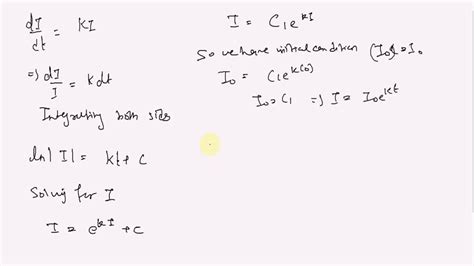 dI/dt = KI
=> dI/I = K dt
Integrating both sides
ln|I| = Kt + C
Solving for I
I = e^{kI} + C
I = C₁e^{kI}
So we have initial condition (I₀) = I₀
I₀ = C₁e^{k(0)}
I₀ = C₁ => I = I₀e^{kt}